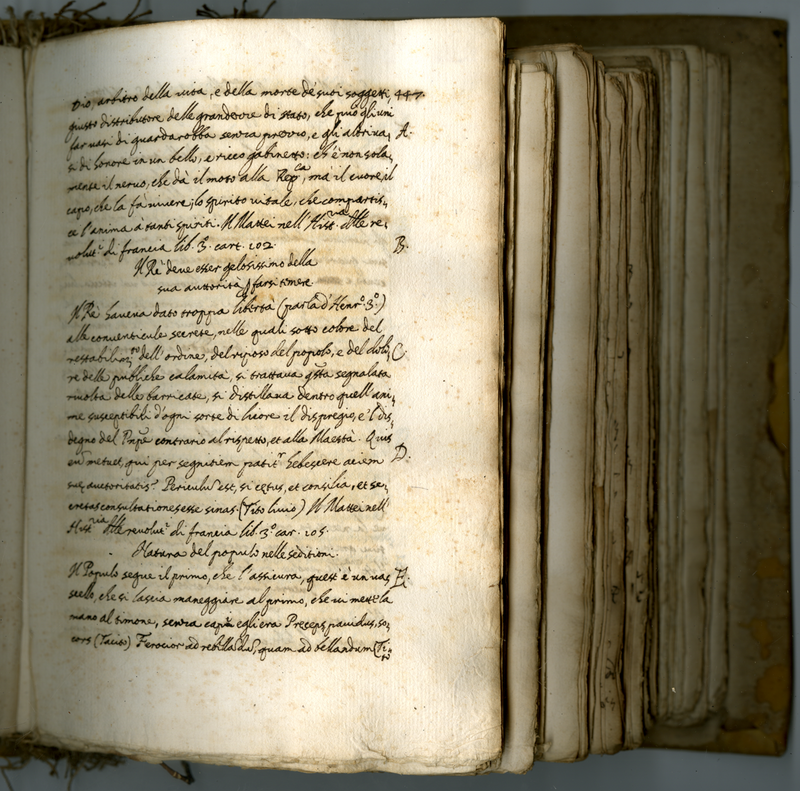 Dio, arbitro della vita, e della morte de' suoi soggetti, 447.
giusto distributore delle grandezze di stato, che può gli uni
far vasi di guardarobba senza prezzo, e gli altri va, A.
si di honore in un bello, e ricco gabinetto: ch'è non sola,
mente il nervo, che dà il moto alla Rep.ca, mà il cuore, il
capo, che la fà vivere; lo spirito vitale, che compartis,
ce l'anima à tanti spiriti. Il Mattei nell'Hist.ria delle re,
volut.i di francia lib. 3. cart. 102. B.
Il Rè deve esser gelosissimo della
sua auttorità p farsi timere
Il Rè haveva dato troppa libertà (parla d'Henr.o 3.o)
alle conventicule secrete, nelle quali sotto colore del
restabilim.to dell'ordine, del riposo del popolo, e del dolo, C.
re delle publiche calamità, si trattava qsta segnalata
rivolta delle barricate, si distillava dentro quell'ani,
me susceptibili d'ogni sorte di licore il dispregio, e 'l dis,
degno del Pnpe contrario al rispetto, et alla Maestà. Quis
eu metuet, qui per segnitiem patit.r hebescere aciem D.
suę auctoritatis? Periculu est, si cętus, et consilia, et se,
cretas consultationes esse sinas. (Tito livio) Il Mattei nell'
Hist.ria delle revolut.i di francia lib. 3.o car. 105.
Natura del popolo nelle seditioni.
Il Popolo segue il primo, che l'assicura, quest'è un vas, E.
sello, che si lascia maneggiare al primo, che vi mette la
mano al timone, senza egli era Preceps, pavidus, so,
cors (Tacito) Ferocior ad rebellandu, quam ad bellandum (Ti,
to